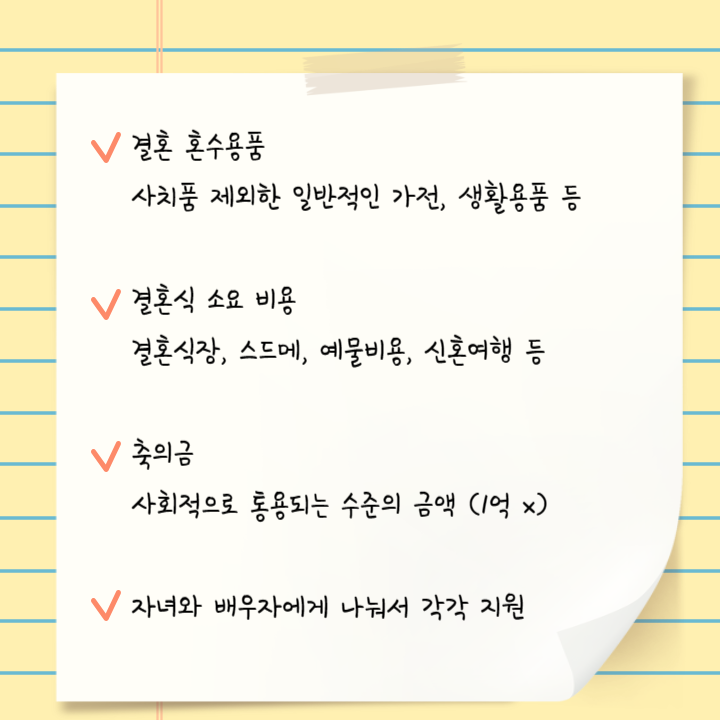 결혼 혼수용품
사치품 제외한 일반적인 가전, 생활용품 등
결혼식 소요 비용
결혼식장, 스드메, 예물비용, 신혼여행 등
축의금
사회적으로 통용되는 수준의 금액 (1억 x)
자녀와 배우자에게 나눠서 각각 지원